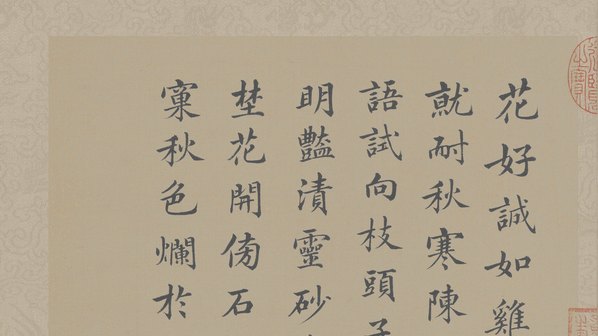 花好誠如雞
就耐秋寒陳
語試向枝頭
明豔漬靈砂
埜花開傍石
窠秋色爛於